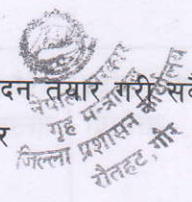 दन तयार गरी स
र
नेपाल सरकार
गृह मन्त्रालय
जिल्ला प्रशासन कार्यालय
रौतहट, गौर